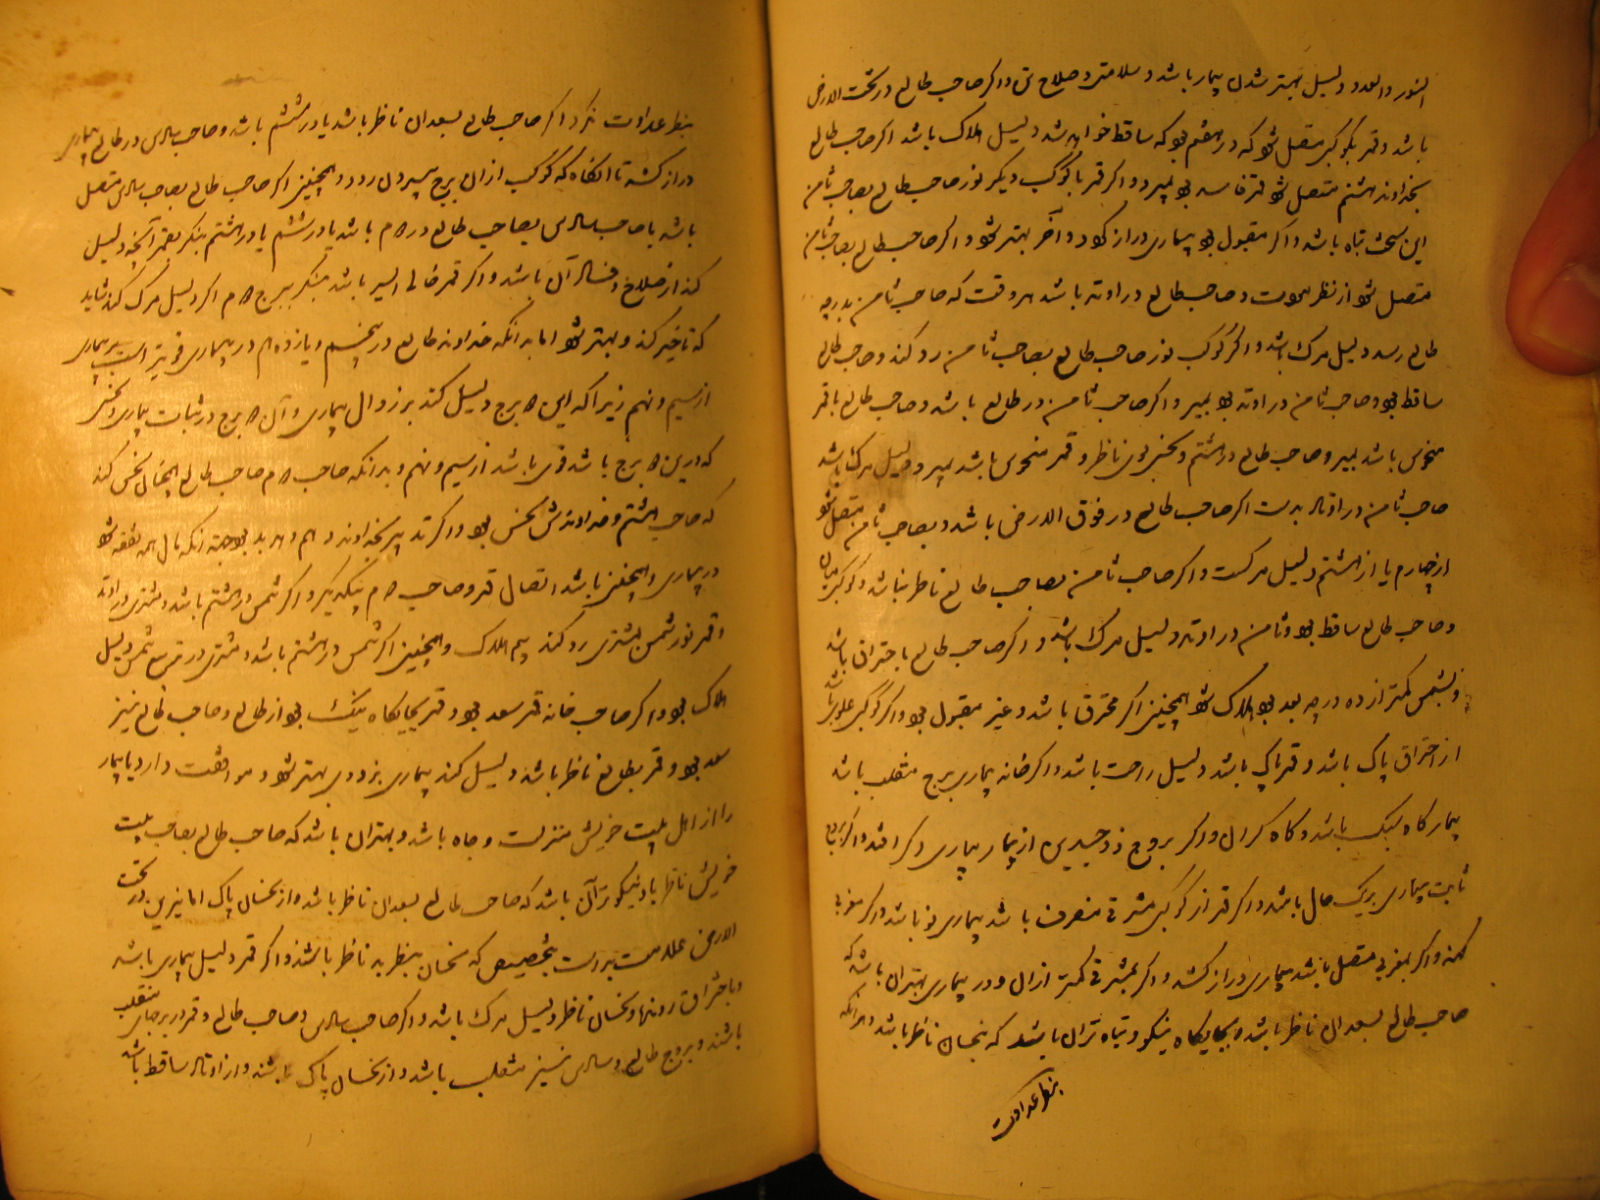 النور والعدد دلیل بهتر شدن بیمار باشد و سلامتی و صلاح تن و اگر صاحب طالع در تحت الارض
باشد و قمر بکوکبی متصل شود که در هفتم بود که ساقط خوانند دلیل هلاک باشد اگر صاحب طالع
بخداوند هشتم متصل شود و قمر فاسد بود بمیرد و اگر قمر با کوکب دیگر نور صاحب طالع بصاحب ثامن
این سخت تباه باشد و اگر مقبول بود بیماری دراز کردد و آخر بهتر شود و اگر صاحب طالع بصاحب ثامن
متصل شود از نظر موت و صاحب طالع در اوتد باشد هر وقت که صاحب ثامن بدرجه
طالع رسد دلیل مرک باشد و اگر کوکب نور صاحب طالع بصاحب ثامن رد کند و صاحب طالع
ساقط بود و صاحب ثامن در اوتد بود بمیرد و اگر صاحب ثامن در طالع باشد و صاحب طالع با قمر
منحوس باشد بمیرد و صاحب طالع در هشتم و نحس بوی ناظر و قمر منحوس باشد بمیرد و دلیل مرک باشد
صاحب ثامن در اوتاد بدست اگر صاحب طالع در فوق الارض باشد و بصاحب ثامن متصل شود
از چهارم یا از هشتم دلیل مرکست و اگر صاحب ثامن بصاحب طالع ناظر نباشد و کوکبی میان
و صاحب طالع ساقط بود و ثامن در اوتد دلیل مرک باشد و اگر صاحب طالع باحتراق باشد
و بشمس کمتر از ده درجه بعد بود هلاک شود همچنین اگر محترق باشد و غیر مقبول بود و اگر کوکبی علوی باشد
از احتراق پاک باشد و قمر پاک باشد دلیل راحت باشد و اگر خانه بیماری برج منقلب باشد
بیمار کاه سبک باشد و کاه کران و اگر بروج ذوجسدین از بیماری بیماری دکر افتد و اگر برج
ثابت بیماری بریک حال باشد و اگر قمر از کوکبی مشرقی منصرف باشد بیماری نو باشد و اگر مغربی
کهنه و اگر بمغربی متصل باشد بیماری دراز کشد و اگر بمشرقی کمتر از آن و در بیماری بهتر آن باشد که
صاحب طالع بسعدان ناظر باشد و بجایکاه نیکو و تباه تر آن باشد که بنحسان ناظر باشد و هرانکه
بنظر عداوت
بنظر عداوت نکرد اگر صاحب طالع بسعدان ناظر باشد یا در ششم باشد و صاحب سادس در طالع بیماری
دراز کشد تا انکاه که کوکب از ان برج بیرون رود و همچنین اگر صاحب طالع بصاحب سادس متصل
باشد یا صاحب سادس بصاحب طالع در ۴م باشد یا در ششم یا در هشتم بنکر بقمر آنچه دلیل
کند از صلاح و فساد آن باشد و اگر قمر خالی السیر باشد بنکر ببرج ۴م اگر دلیل مرک کند شاید
که تاخیر کند و بهتر شود اما بدانکه خداوند طالع در پنجم و یازدهم در بیماری قویتر است بر بیماری
از سیم و نهم زیرا که این ۲ برج دلیل کند بر زوال بیماری و آن ۲ برج در ثبات بیماری و نحس
که درین ۲ برج باشد قوی باشد از سیم و نهم و بدانکه صاحب ۴م صاحب طالع همچنان نحس کند
که صاحب هشتم و خداوندش نحس بود و اگر تدبیر بخداوند دهم دهد بد بود جهت آنکه مال همه نفقه شود
در بیماری و همچنین باشد اتصال قمر و صاحب ۴م بیکدیکر و اگر شمس در هشتم باشد و مشتری در اوتد
و قمر نور شمس بمشتری رد کند بیم هلاک و همچنین اگر شمس در هشتم باشد و مشتری در تربیع شمس دلیل
هلاک بود و اگر صاحب خانه قمر سعد بود و قمر بجایکاه نیک بود از طالع و صاحب طالع نیز
سعد بود و قمر بطالع ناظر باشد دلیل کند بیماری بزودی بهتر شود و موافقت دارد یا بیمار
را از اهل بیت خویش منزلت و جاه باشد و بهتر آن باشد که صاحب طالع بصاحب بیت
خویش ناظر باد و نیکوتر آن باشد که صاحب طالع بسعدان ناظر باشد و از نحسان پاک اما نیرین در تحت
الارض علامت بد است بتخصیص که نحسان بنظر بد ناظر باشند و اگر قمر دلیل بیماری باشد
و باحتراق رود و نحسان ناظر دلیل مرک باشد و اگر صاحب سادس و صاحب طالع و قمر در برجهای منقلب
باشند و بروج طالع و سادس نیز منقلب باشد و از نحسان پاک باشند و از اوتاد ساقط باشد